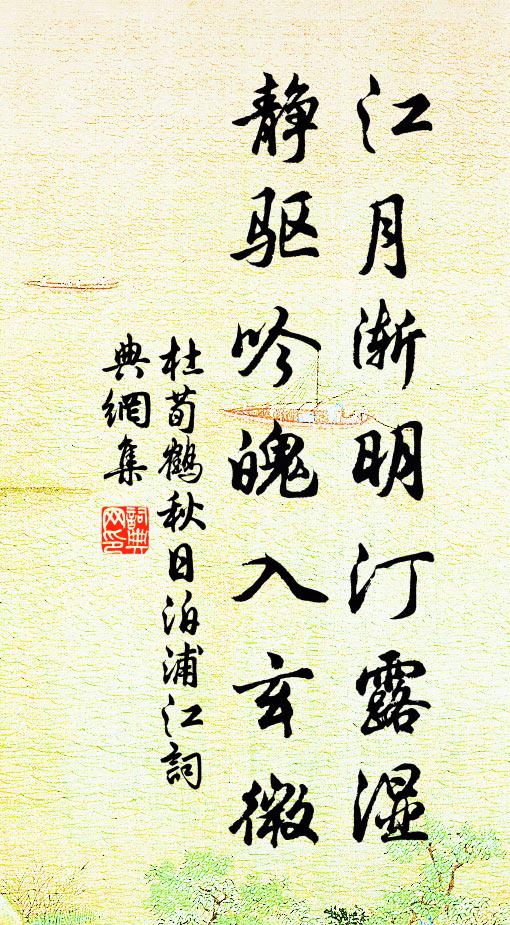 江月渐明汀露湿
静驱吟魄入玄微
杜荀鹤秋日泊浦江詞
典網集
詞典
网印